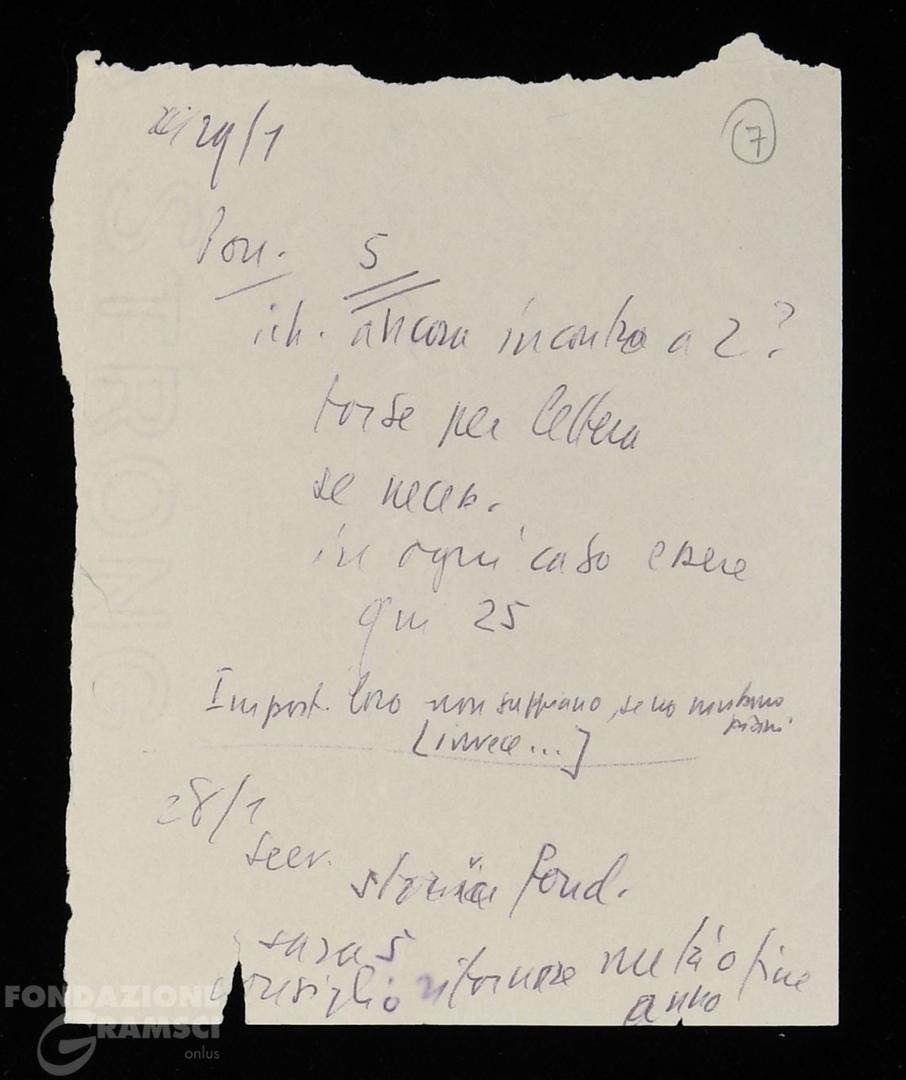 29/1
7
Pon. 5
ich. ancora incontro a 2?
forse per lettera
se neces.
in ogni caso essere
qui 25
Import. loro non sappiano, se no mutano
piani
[invece...]
28/1
seer.
storia fond.
sara 5
consiglio ritornare metà o fine
anno
STRONG
FONDAZIONE
GRAMSCI
onlus